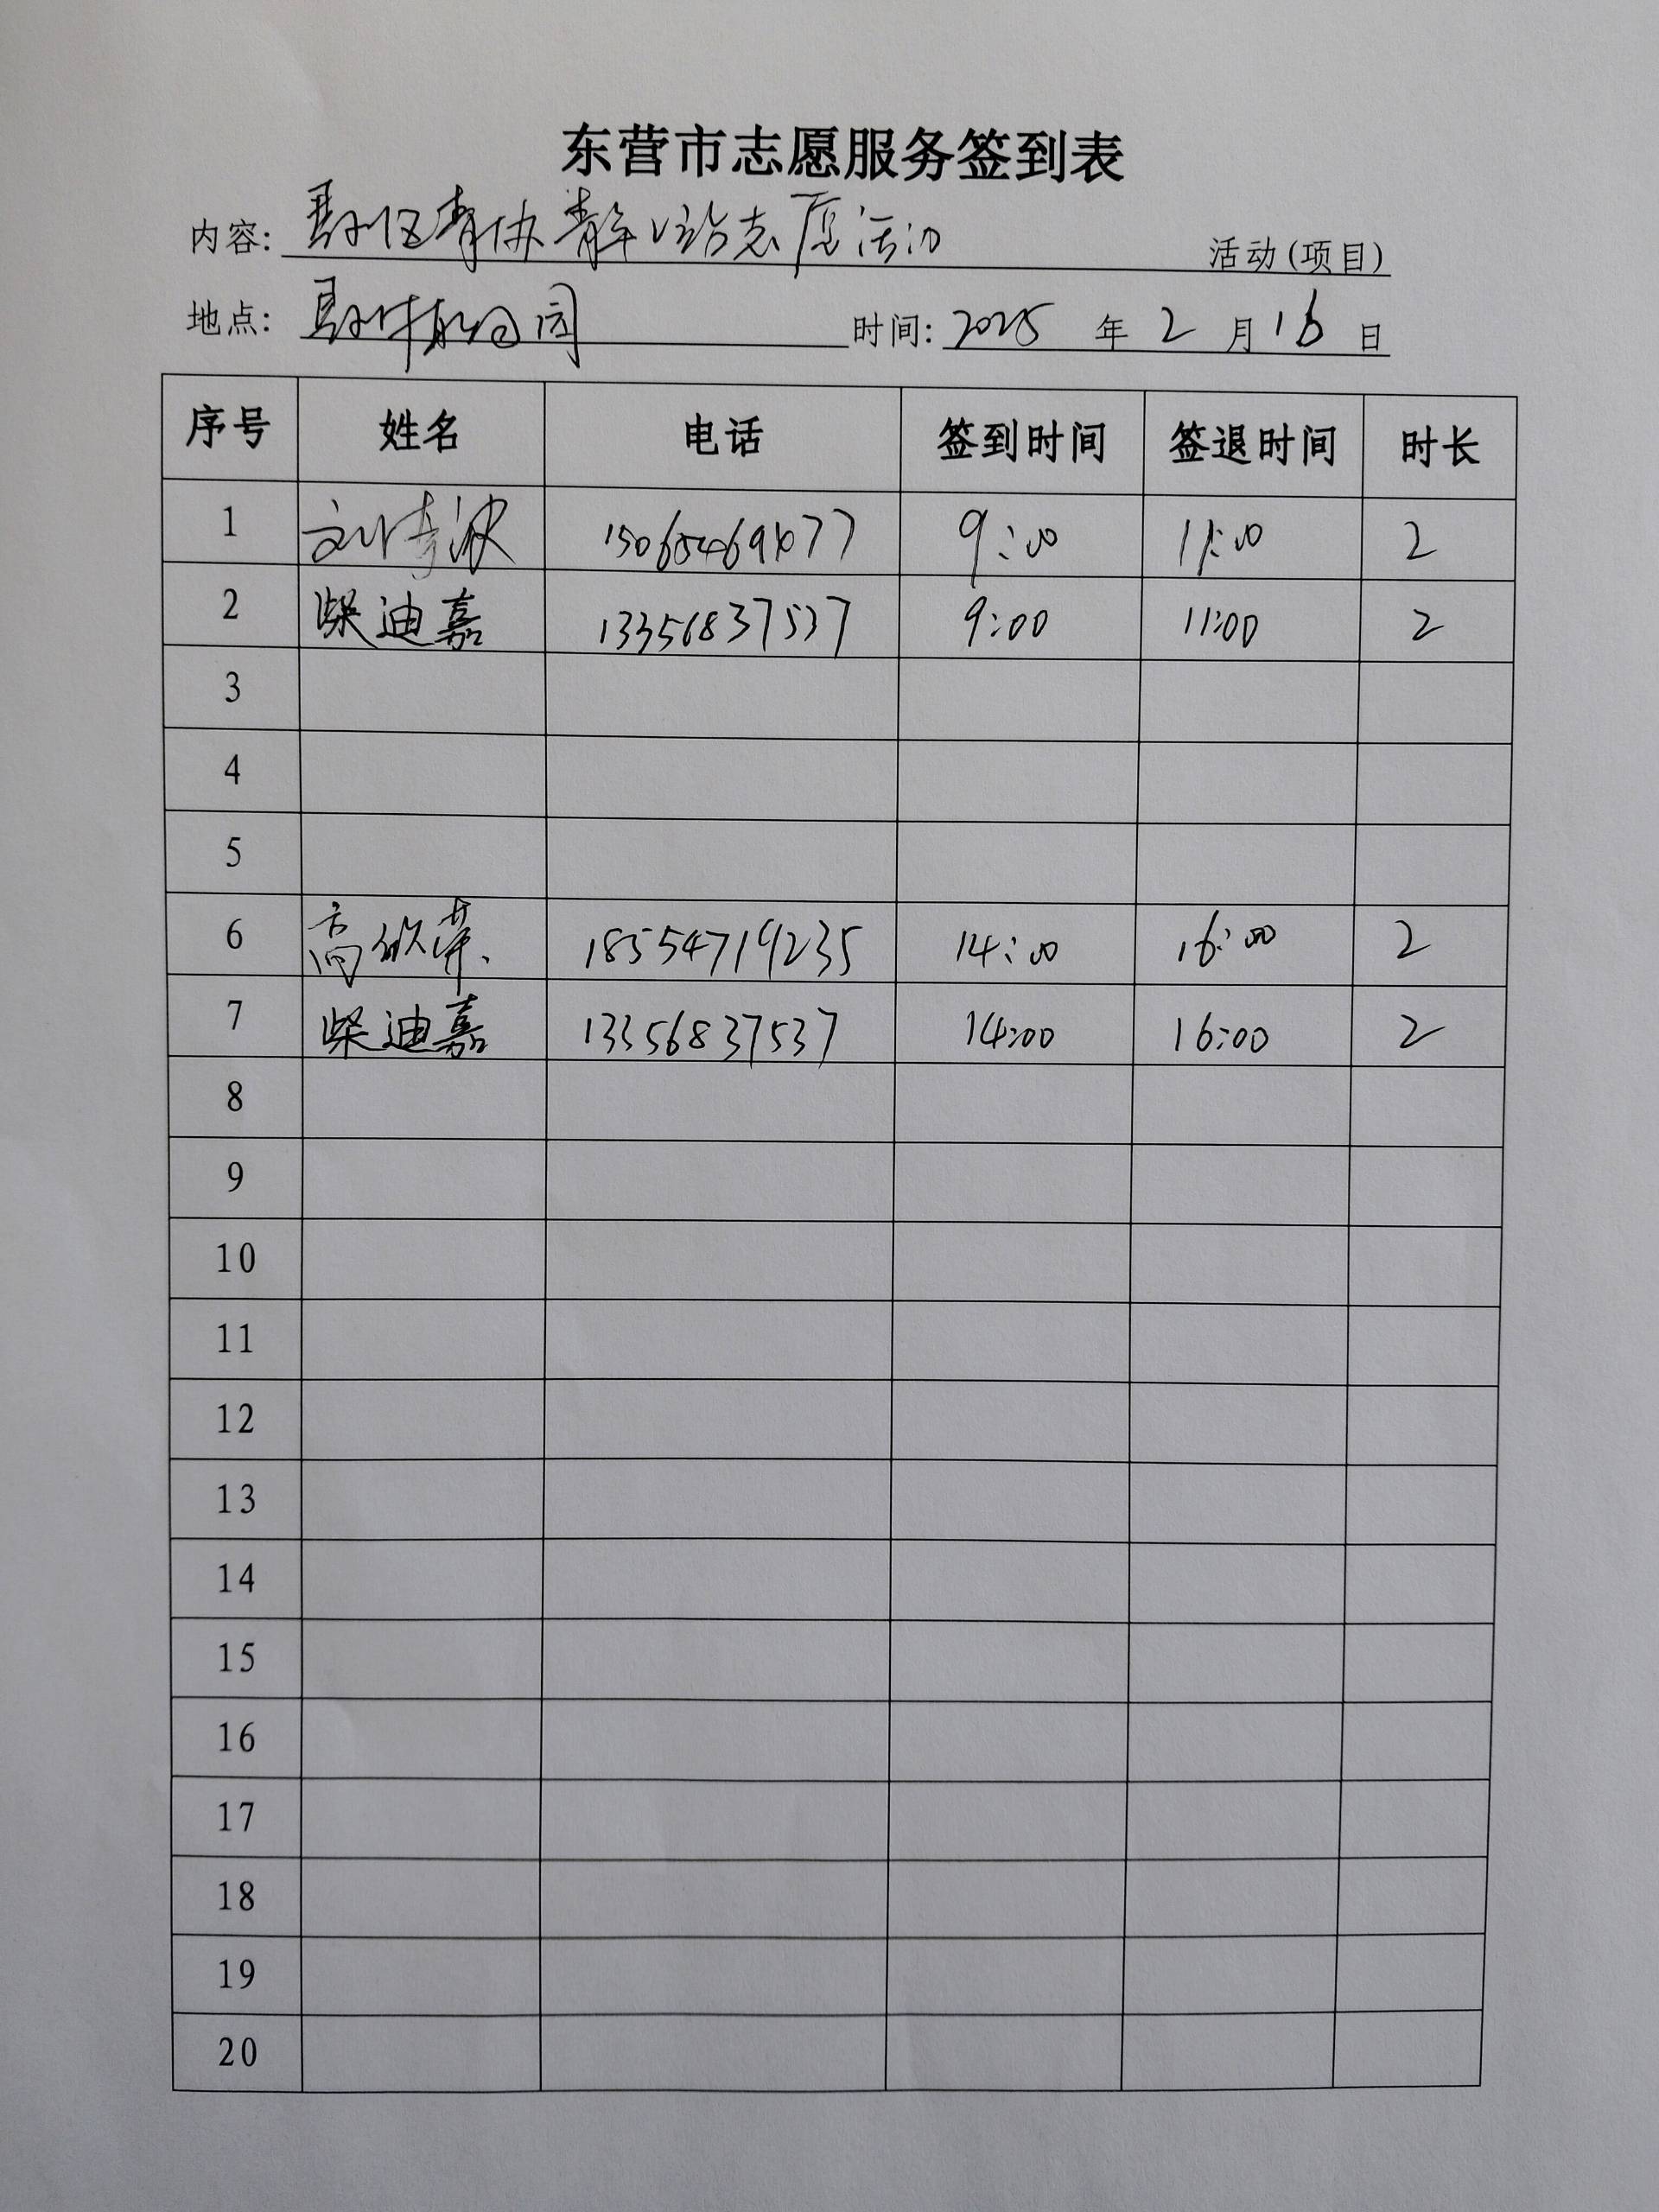 东营市志愿服务签到表
内容: 垦利区青协青年V站志愿活动 活动(项目)
地点: 垦利 公园 时间: 2025 年 2 月 16 日
序号 姓名 电话 签到时间 签退时间 时长
1 刘 波 9:00 11:00 2
2 柴迪嘉 13356837537 9:00 11:00 2
3
4
5
6 高欣苹 18554719235 14:00 16:00 2
7 柴迪嘉 13356837537 14:00 16:00 2
8
9
10
11
12
13
14
15
16
17
18
19
20